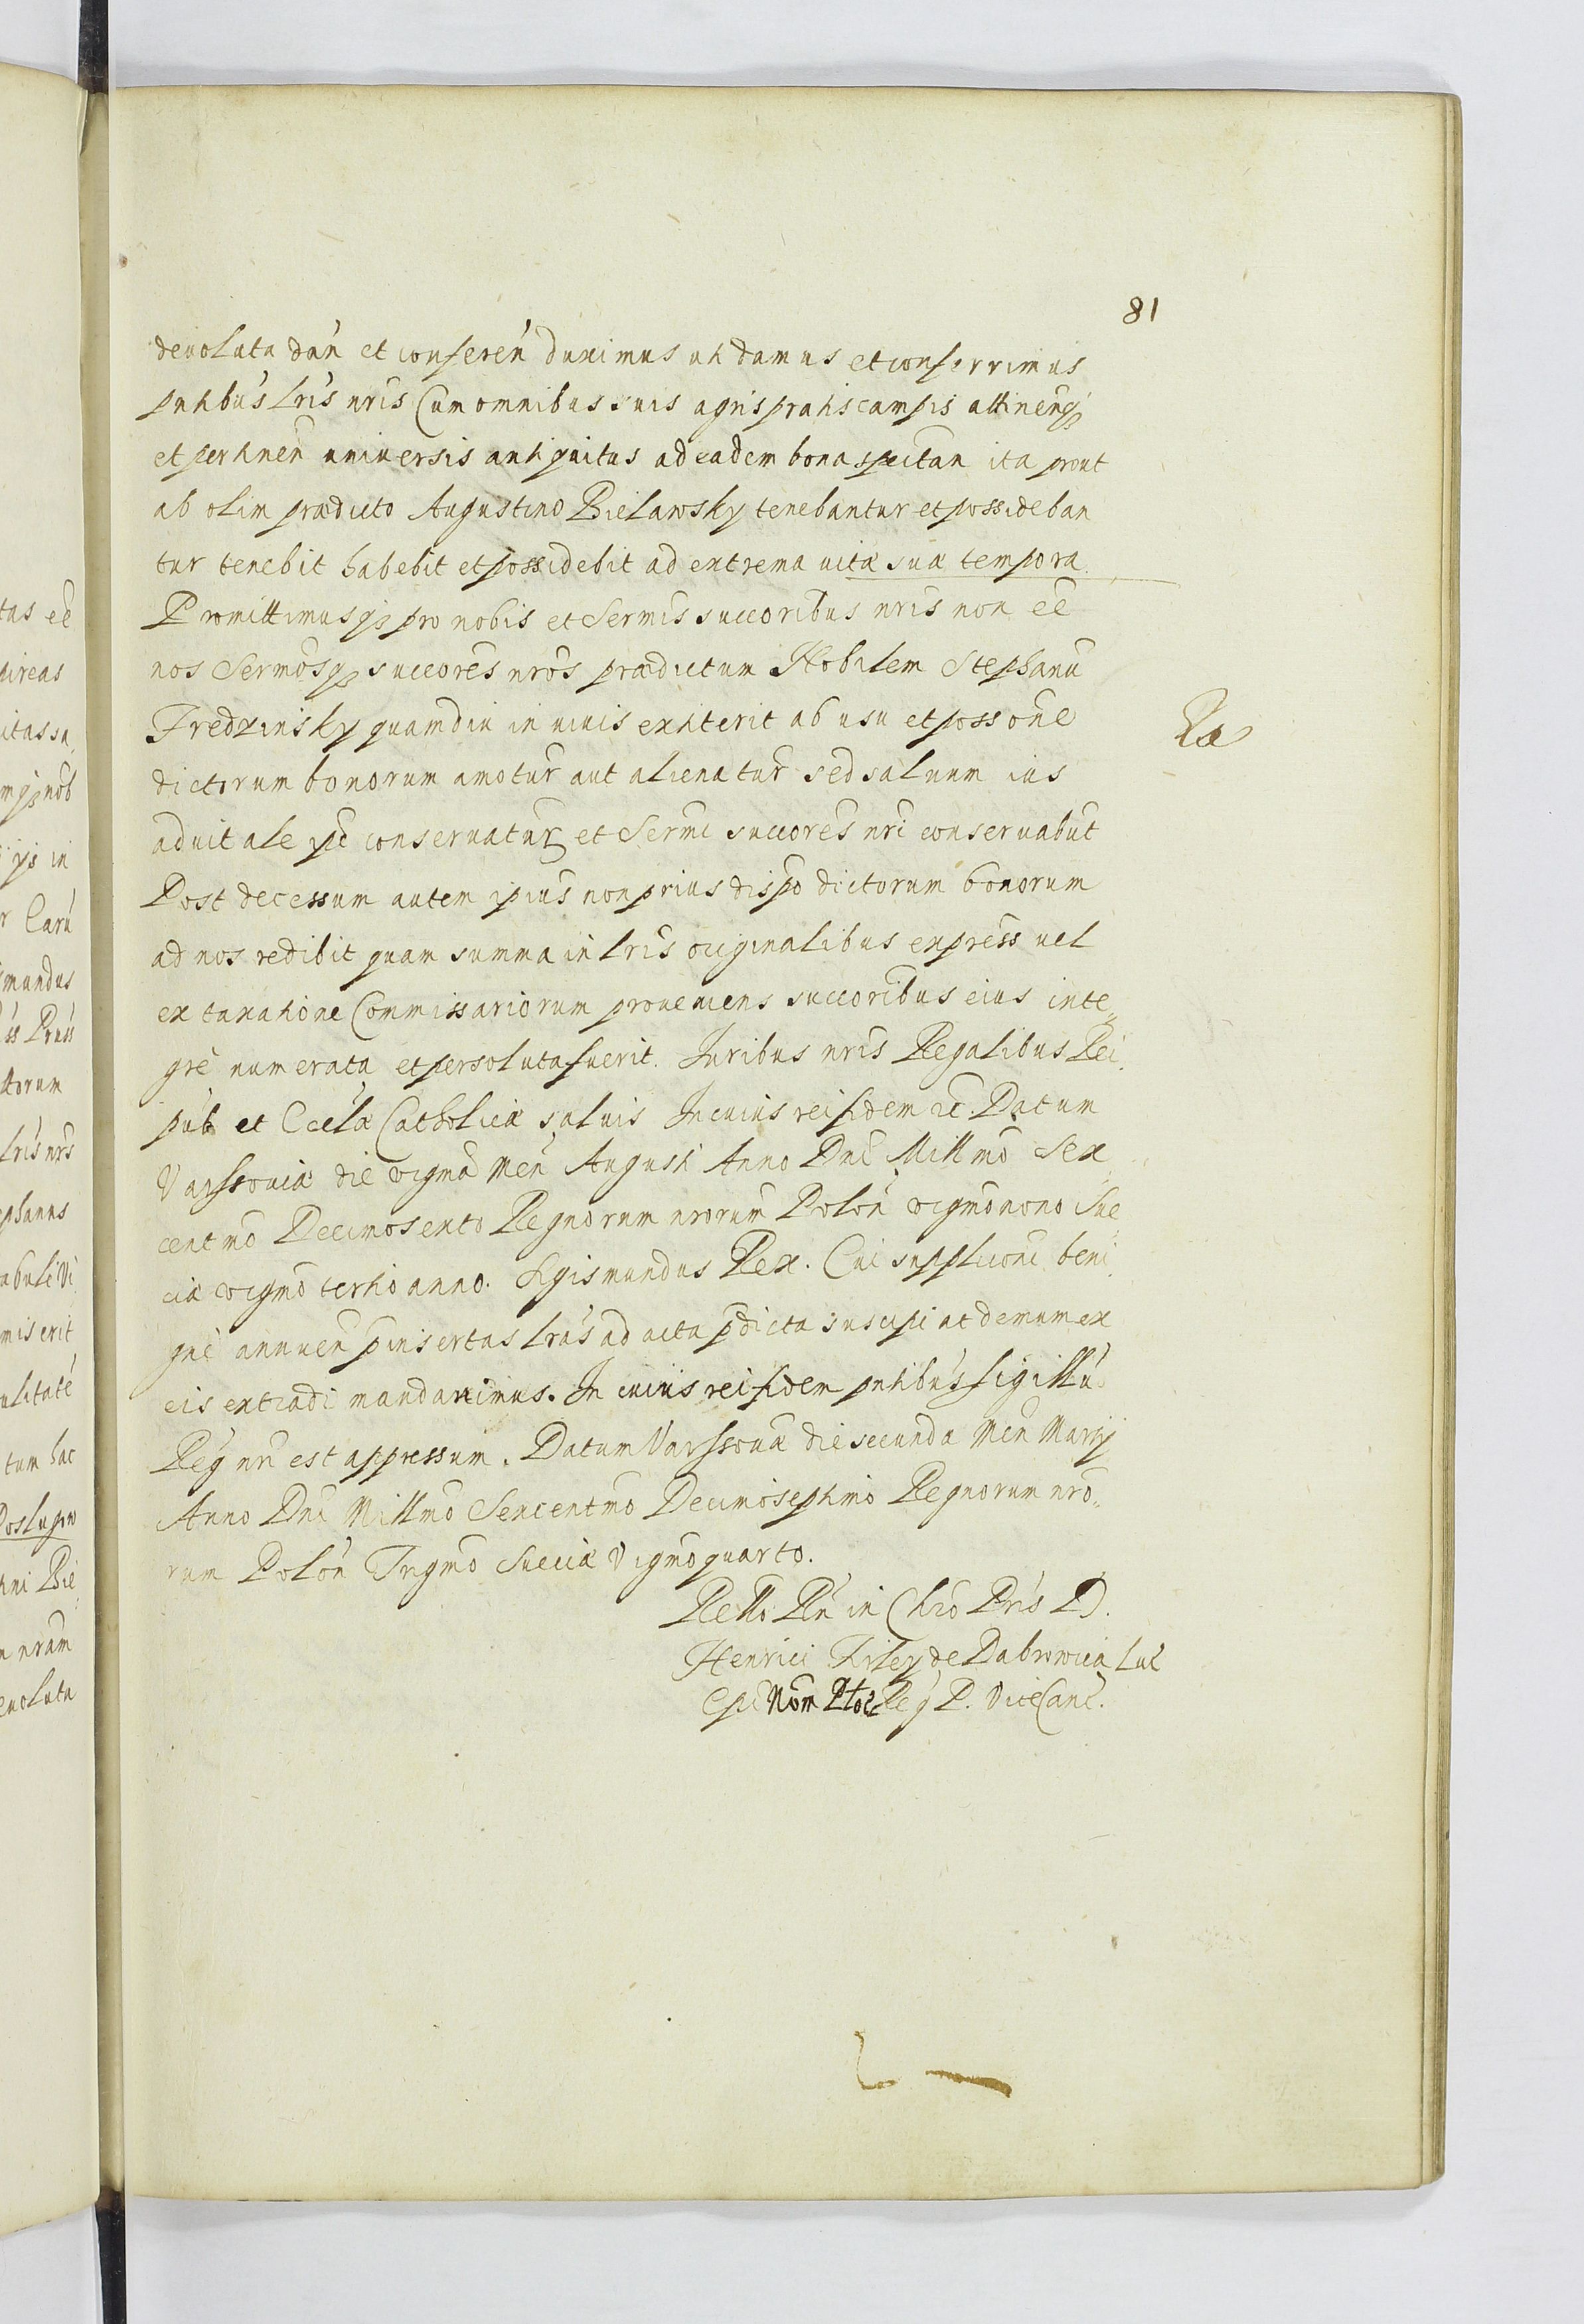 81
deuoluta dań et confereń duximus uti damus et conferrimus
pntibus lris nris Cum omnibus suis agris pratis campis attinenq3
et pertineñ uniuersis antiquitus ad eadem bona spectan ita prout
ab olim prædicto Augustino Bielawsky tenebantur et possideban
tur tenebit habebit et possidebit ad extrema uitæ suæ tempora.
Promittimusq3 pro nobis et Sermis succoribus nris non eē
nos Sermosq3 succores nros prædictum Nobilem Stephanū
Fredzinsky quamdiu in uiuis extiterit ab usu et possone
dictorum bonorum amotur̄ aut alienatur̄ sed saluum ius
aduitale ipē conseruatur̄ et Sermi succores nri conseruabūt
Post decessum autem ipius non prius dispo dictorum bonorum
ad nos redibit quam summa in lris originalibus express uel
ex taxatione Commissariorum proueniens succoribus eius inte„
gre numerata et persoluta fuerit. Juribus nris Regalibus Rei
pub et Eccłæ Catholicæ saluis In cuius rei fidem ꝛc. Datum
Varssouiæ die vigmā Men̄ Augusti Anno Dni Millmo Sex
centmo Decimosexto Regnorum nrorum Polon̄ vigmo nono Sue
ciæ vigmo tertio anno. Sigismundus Rex. Cui supplicōni beni
gnè annuen̄ pinsertas lras ad acta pdicta suscipi ac demum ex
eis extradi mandauimus. In cuius rei fidem pntibus sigillū
Reg nrī est appressum. Datum Varssouiæ die secunda Men̄ Martij
Anno Dni Millmo Sexcentmo Decimoseptimo Regnorum nro„
rum Polon̄ Trigmo Sueciæ Vigmo quarto.
Relło Rn̄ in Chro Pris D.
Henrici Firley de Dabrowica Luc̄
Epi Nom Płoc̄ Reg P. ViceCanc̄.